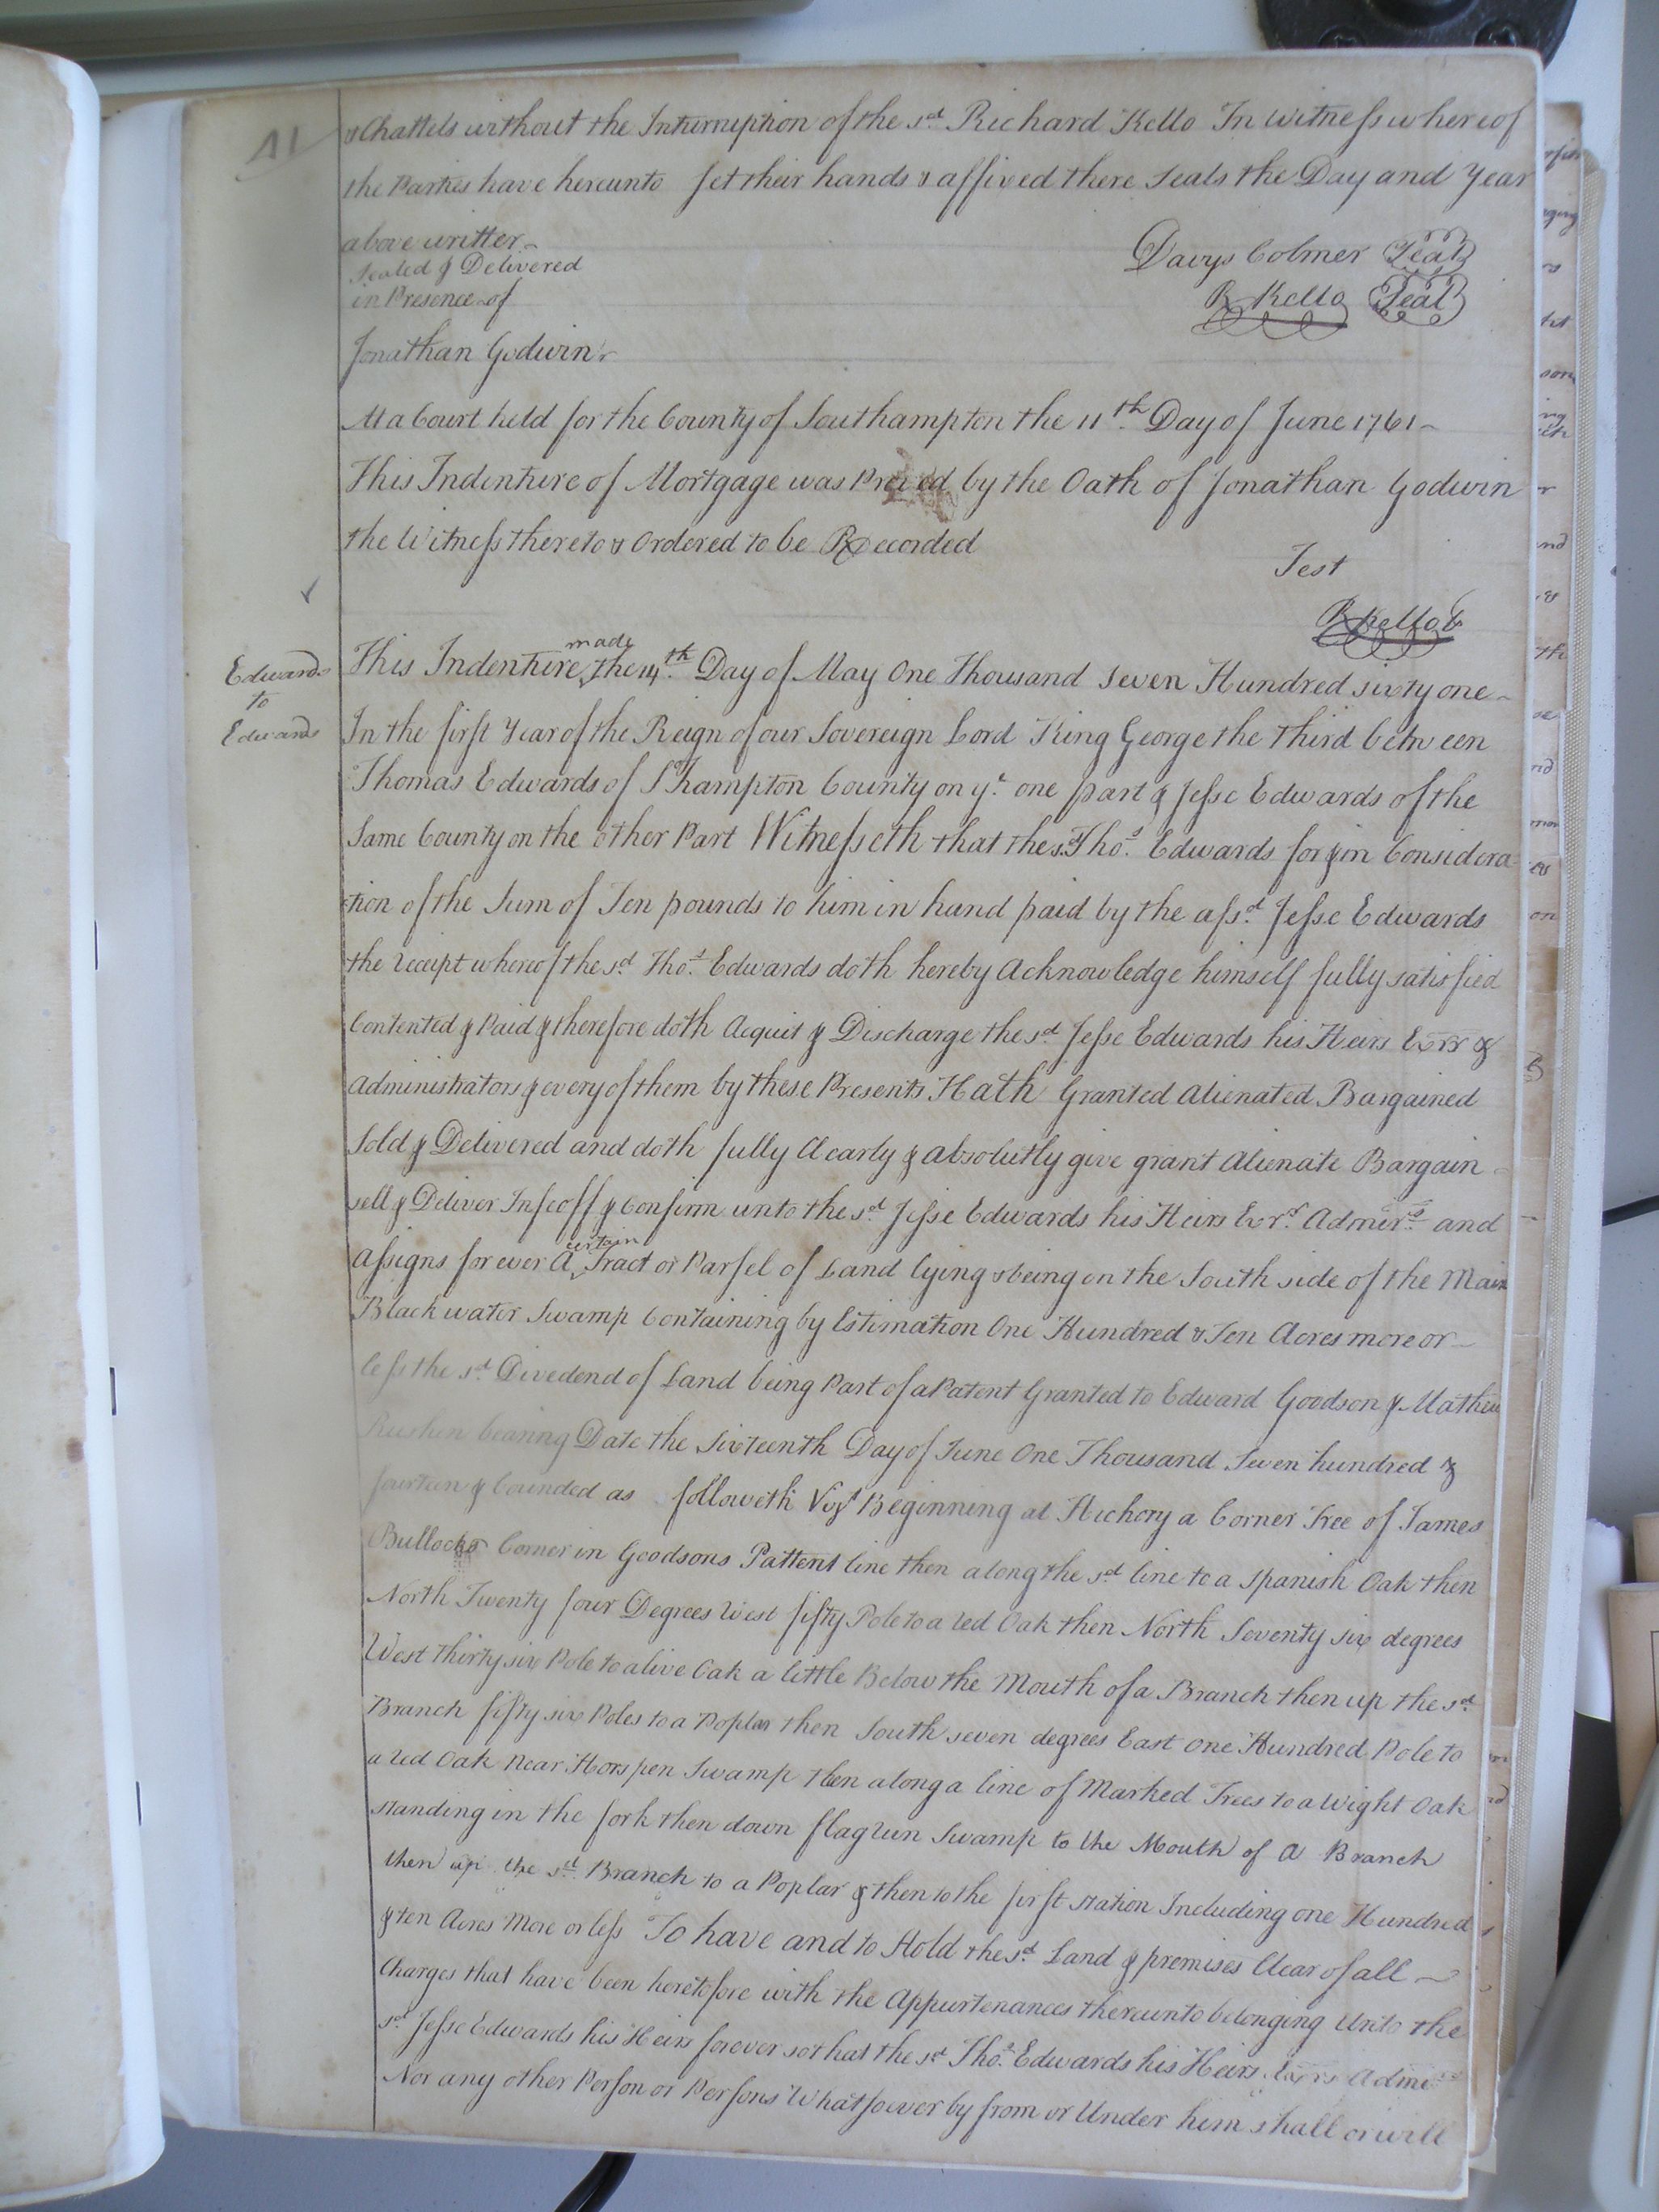 41
& Chattels without the Interruption of the sd. Richard Kello In Witness whereof
the Parties have hereunto set their hands & affixed there Seals the Day and Year
above written
Sealed & Delivered
in Presence of
Davys Colmer Seal
R Kello Seal
Jonathan Godwin
At a Court held for the County of Southampton the 11th. Day of June 1761
This Indenture of Mortgage was Proved by the Oath of Jonathan Godwin
the Witness thereto & Ordered to be Recorded
Test
R Kello C
Edwards
to
Edwards
This Indenture made the 14th. Day of May One Thousand Seven Hundred sixty one
In the first Year of the Reign of our Sovereign Lord King George the third between
Thomas Edwards of Shampton County on ye. one part & Jesse Edwards of the
Same County on the other Part Witnesseth that the s. Thos. Edwards for & in Considera
tion of the Sum of Ten pounds to him in hand paid by the afsd. Jesse Edwards
the receipt whereof the sd. Thos. Edwards doth hereby Acknowledge himself fully satisfied
Contented & Paid & therefore doth Acquit & Discharge the sd. Jesse Edwards his Heirs Exrs &
Administrators & every of them by these Presents Hath Granted Alienated Bargained
Sold & Delivered and doth fully Clearly & absolutly give grant Alienate Bargain
sell & Deliver Infeoff & Confirm unto the sd. Jesse Edwards his Heirs Exrs. Admrs. and
Assigns for ever A certain Tract or Parsel of Land lying & being on the South side of the Main
Black water Swamp Containing by Estimation One Hundred & Ten Acres more or
less the sd. Divedend of Land being Part of a Patent Granted to Edward Goodson & Mathew
Rushen bearing Date the Sixteenth Day of June One Thousand Seven hundred &
fourteen & bounded as followeth Vizt Beginning at Hickory a Corner Tree of James
Bullocks Corner in Goodsons Pattent line then along the sd. line to a Spanish Oak then
North Twenty four Degrees West fifty Pole to a red Oak then North Seventy six degrees
West Thirty six Pole to a live Oak a little Below the Mouth of a Branch then up the sd.
Branch fifty six Poles to a Poplar then South seven degrees East One Hundred Pole to
a red Oak near Horspen Swamp then along a line of Marked Trees to a Wight Oak
standing in the fork then down flag run Swamp to the Mouth of a Branch
then up the sd. Branch to a Poplar & then to the first station Including one Hundred
& ten Acres More or less To have and to Hold the sd. Land & premises Clear of all
Charges that have been heretofore with the Appurtenances thereunto belonging Unto the
sd. Jesse Edwards his Heirs forever so that the sd Thos. Edwards his Heirs Exrs Admrs
Nor any other Person or Persons Whatsoever by from or Under him shall or will